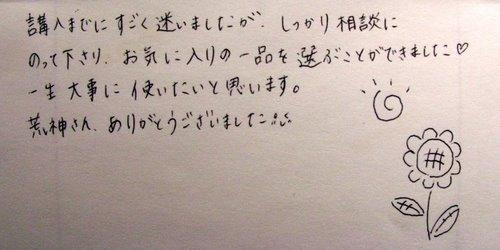 講入までにすごく迷いましたが、しっかり相談に
のって下さり、お気に入りの一品を選ぶことができました♡
一生大事に使いたいと思います。
荒神さん、ありがとうございました